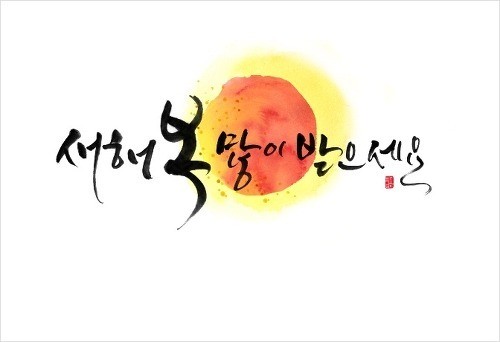 새해 복 많이 받으세요